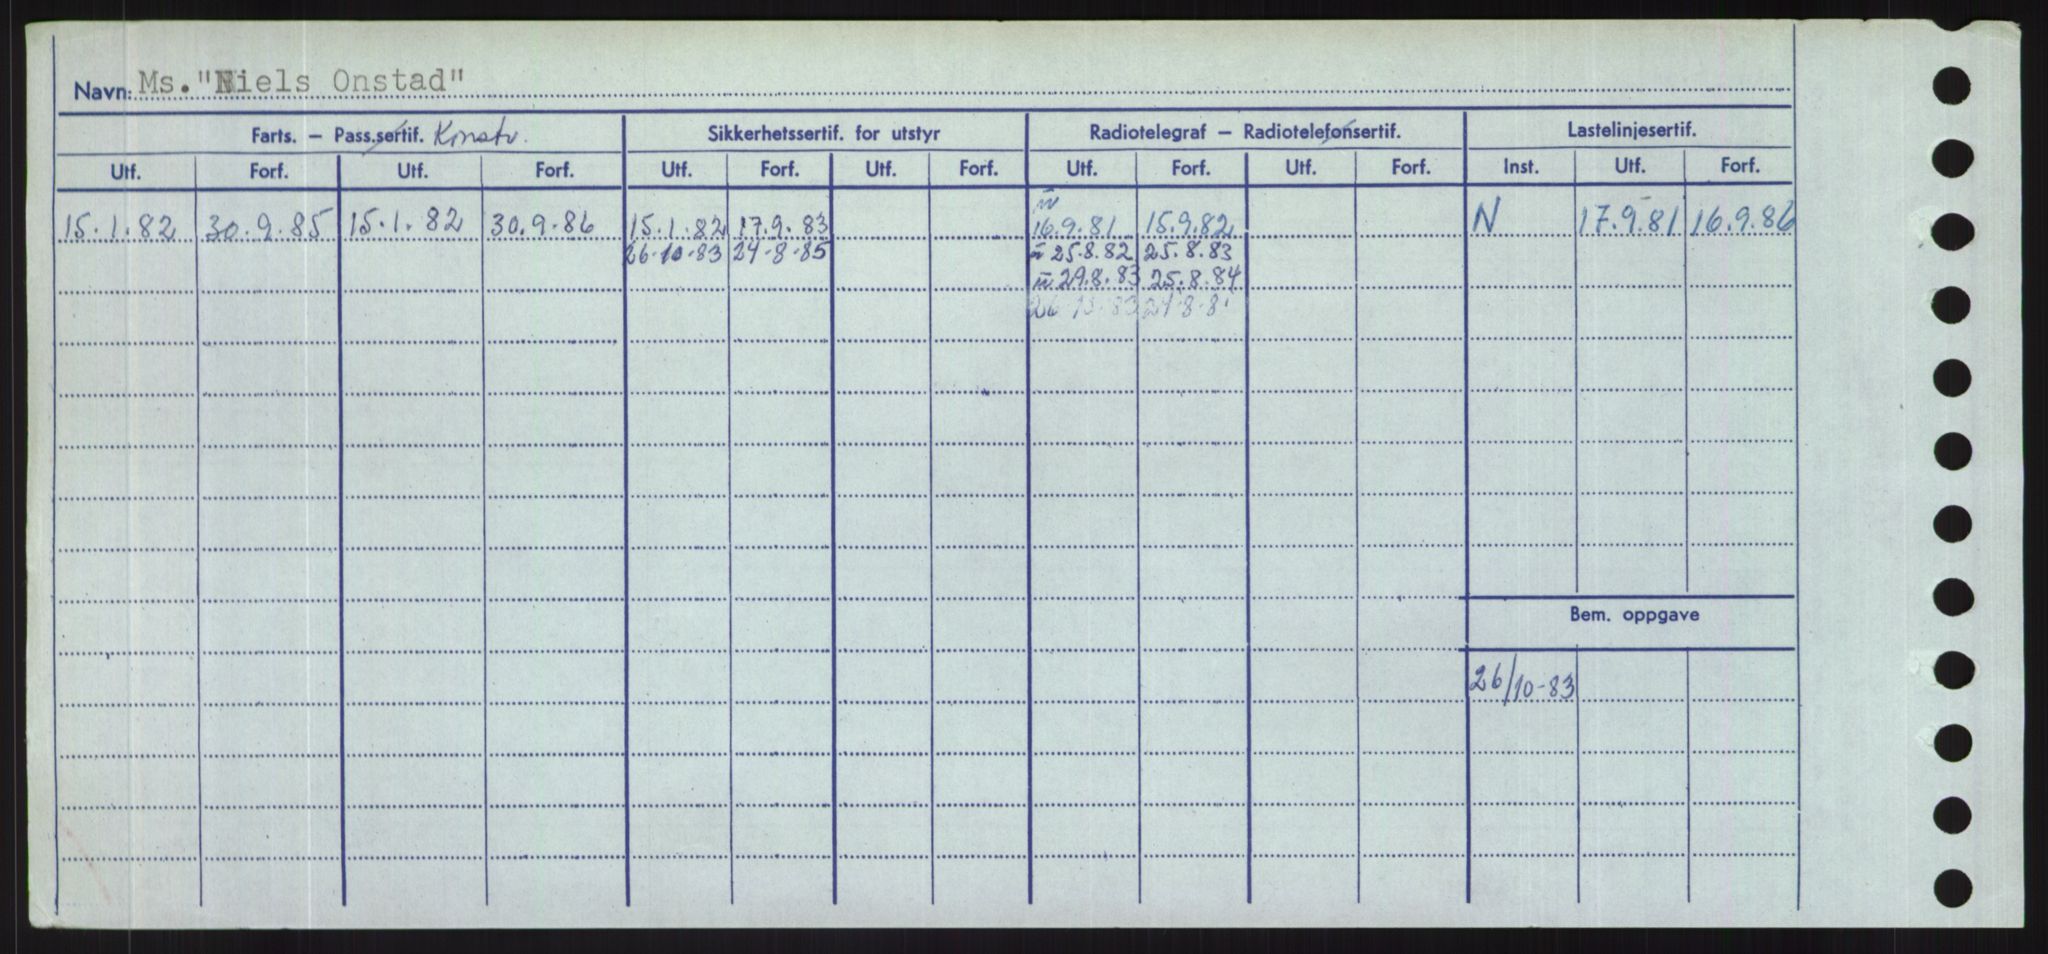 Navn: Ms. "Niels Onstad"
Farts. — Pass.sertif. Konstr. Sikkerhetssertif. for utstyr Radiotelegraf — Radiotelefonsertif. Lastelinjesertif.
Utf. Forf. Utf. Forf. Utf. Forf. Utf. Forf. Utf. Forf. Utf. Forf. Inst. Utf. Forf.
15.1.82 30.9.85 15.1.82 30.9.86 15.1.82 17.9.83 16.9.81 15.9.82 N 17.9.81 16.9.86
26-10-83 24-8-85 25.8.82 25.8.83
29.8.83 25.8.84
26 10-83 24-8-8
Bem. oppgave
26/10-83